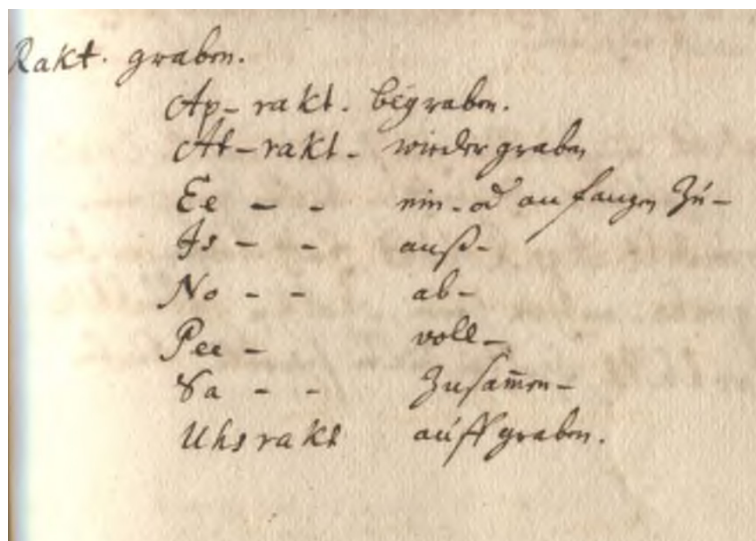 Rakt. graben.
Ap-rakt. begraben.
At-rakt. wieder graben
Ee - - ein- od anfangen zu-
Is - - auß-
No - - ab-
Pee - voll-
Sa - - Zusam̄en-
Uhsrakt auffgraben.